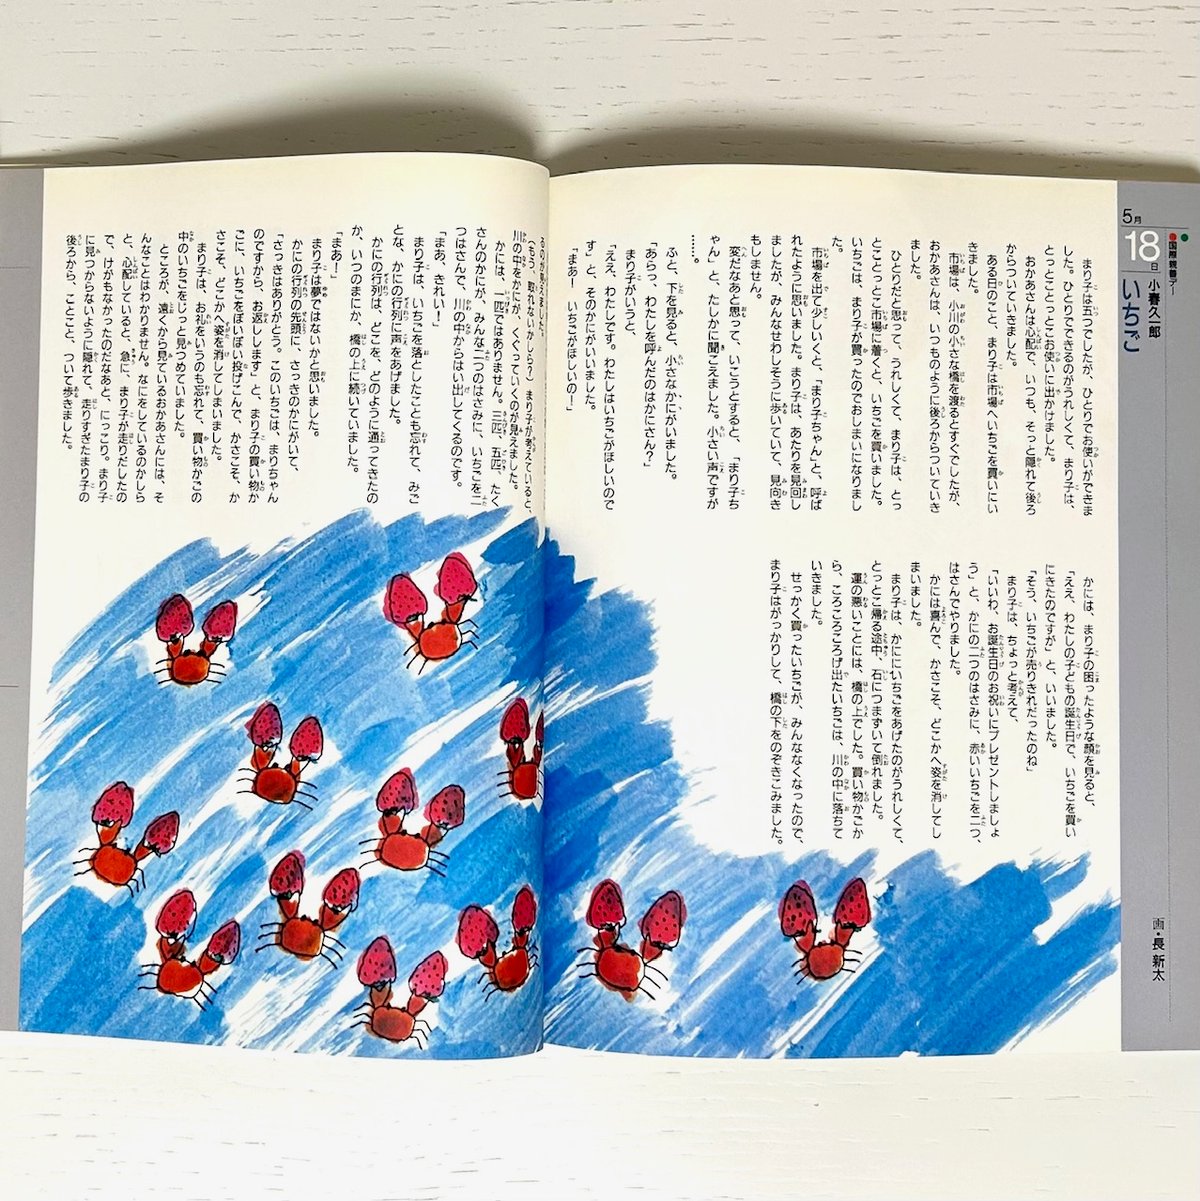 5月
18日
国際親善デー
小春久一郎
いちご
まり子は五つでしたが、ひとりでお使いができま
した。ひとりでできるのがうれしくて、まり子は、
とっとことっとこお使いに出かけました。
おかあさんは心配で、いつも、そっと隠れて後ろ
からついていきました。
ある日のこと、まり子は市場へいちごを買いにい
きました。
市場は、小川の小さな橋を渡るとすぐでしたが、
おかあさんは、いつものように後ろからついていき
ました。
ひとりだと思って、うれしくて、まり子は、とっ
とことっとこ市場に着くと、いちごを買いました。
いちごは、まり子が買ったのでおしまいになりまし
た。
市場を出て少しいくと、「まり子ちゃん」と、呼ば
れたように思いました。まり子は、あたりを見回し
ましたが、みんなせわしそうに歩いていて、見向き
もしません。
変だなあと思って、いこうとすると、「まり子ち
ゃん」と、たしかに聞こえました。小さい声ですが
……。
ふと、下を見ると、小さなかにがいました。
「あらっ、わたしを呼んだのはかにさん？」
まり子がいうと、
「ええ、わたしです。わたしはいちごがほしいので
す」と、そのかにがいいました。
「まあ！　いちごがほしいの！」
かには、まり子の困ったような顔を見ると、
「ええ、わたしの子どもの誕生日で、いちごを買い
にきたのですが」と、いいました。
「そう、いちごが売りきれだったのね」
まり子は、ちょっと考えて、
「いいわ、お誕生日のお祝いにプレゼントしましょ
う」と、かにの二つのはさみに、赤いいちごを二つ、
はさんでやりました。
かには喜んで、かさこそ、どこかへ姿を消してし
まいました。
まり子は、かににいちごをあげたのがうれしくて、
とっとこ帰る途中、石につまずいて倒れました。
運の悪いことには、橋の上でした。買い物かごか
ら、ころころころげ出たいちごは、川の中に落ちて
いきました。
せっかく買ったいちごが、みんななくなったので、
まり子はがっかりして、橋の下をのぞきこみました。
画・長 新太
るのが見えました。
（もう、取れないかしら？）　まり子が考えていると、
川の中をかにが、くぐっていくのが見えました。
かには、一匹ではありません。三匹、五匹、たく
さんのかにが、みんな二つのはさみに、いちごを二
つはさんで、川の中からはい出してくるのです。
「まあ、きれい！」
まり子は、いちごを落としたことも忘れて、みご
とな、かにの行列に声をあげました。
かにの行列は、どこを、どのように通ってきたの
か、いつのまにか、橋の上に続いていました。
「まあ！」
まり子は夢ではないかと思いました。
かにの行列の先頭に、さっきのかにがいて、
「さっきはありがとう。このいちごは、まりちゃん
のですから、お返しします」と、まり子の買い物か
ごに、いちごをぽいぽい投げこんで、かさこそ、か
さこそ、どこかへ姿を消してしまいました。
まり子は、お礼をいうのも忘れて、買い物かごの
中のいちごをじっと見つめていました。
ところが、遠くから見ているおかあさんには、そ
んなことはわかりません。なにをしているのかしら
と、心配していると、急に、まり子が走りだしたの
で、けがもなかったのだなあと、にっこり。まり子
に見つからないように隠れて、走りすぎたまり子の
後ろから、ことこと、ついて歩きました。